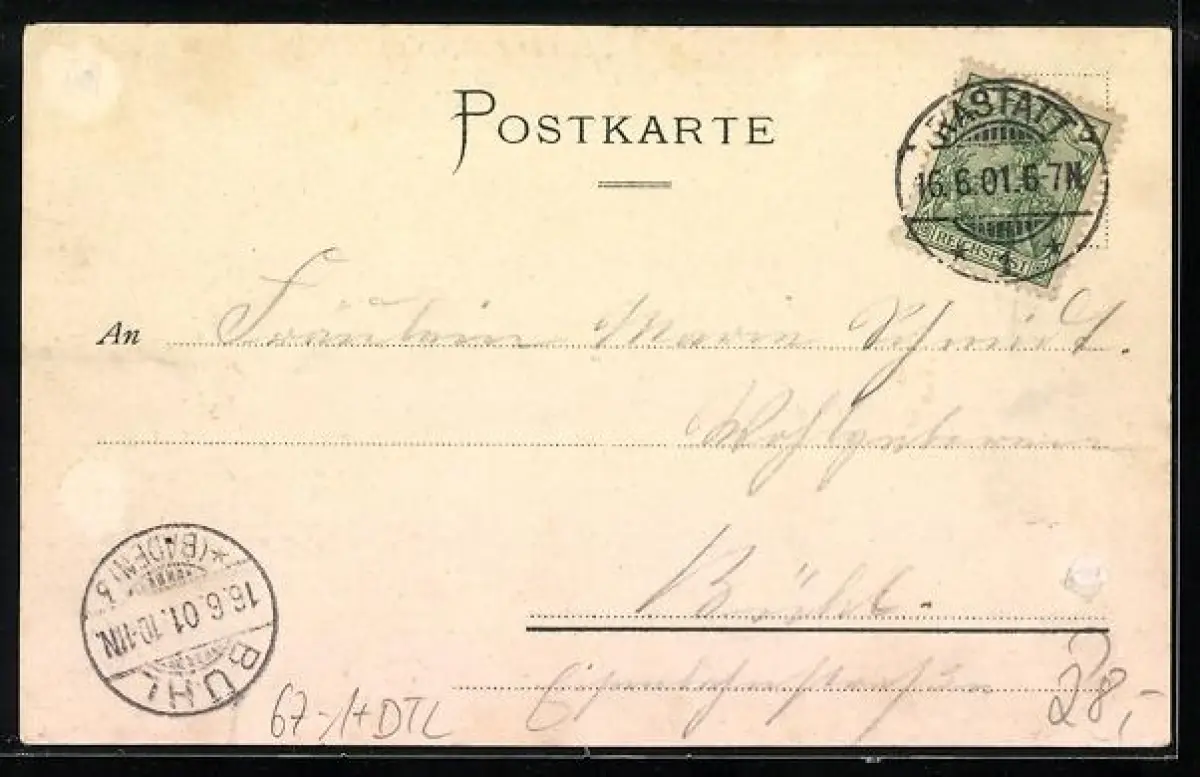 POSTKARTE
RASTATT
16.6.01.6-7N
* 1 *
REICHSPOST
An Fräulein Marie Schmidt.
Wohlgeboren
Bühl.
Eisenbahnstraße
BÜHL
16.6.01.10-11N.
*(BADEN)
67-1+DTL
28,-